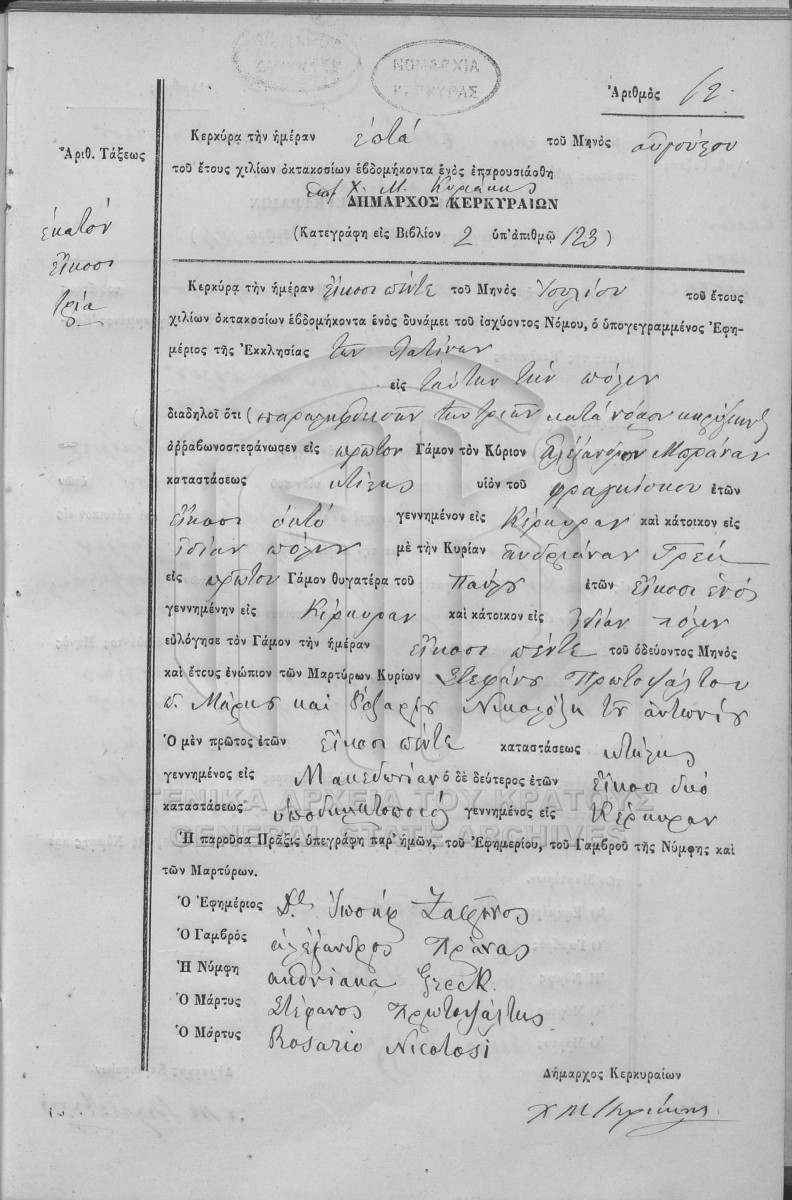 ΝΟΜΑΡΧΙΑ
ΚΕΡΚΥΡΑΣ
Ἀριθμὸς 62.
Κερκύρα τὴν ἡμέραν ἑπτὰ τοῦ Μηνὸς αὐγούστου
Ἀριθ. Τάξεως
τοῦ ἔτους χιλίων ὀκτακοσίων ἑβδομήκοντα ἑνὸς ἐπαρουσιάσθη
Χ. Μ. Κυριάκης
ΔΗΜΑΡΧΟΣ ΚΕΡΚΥΡΑΙΩΝ
(Κατεγράφη εἰς Βιβλίον 2 ὑπ' ἀριθμῷ 123)
ἑκατὸν
εἴκοσι
τρία
Κερκύρα τὴν ἡμέραν εἴκοσι πέντε τοῦ Μηνὸς Ἰουλίου τοῦ ἔτους
χιλίων ὀκτακοσίων ἑβδομήκοντα ἑνὸς δυνάμει τοῦ ἰσχύοντος Νόμου, ὁ ὑπογεγραμμένος Ἐφη-
μέριος τῆς Ἐκκλησίας τῶν Λατίνων
εἰς ταύτην τὴν πόλιν
διαδηλοῖ ὅτι τῶν τριῶν κατὰ νόμον
ἀῤῥαβωνοστεφάνωσεν εἰς πρῶτον Γάμον τὸν Κύριον Ἀλέξανδρον
καταστάσεως υἱὸν τοῦ φραγκίσκου ἐτῶν
εἴκοσι ὀκτὸ γεννημένον εἰς Κέρκυραν καὶ κάτοικον εἰς
ἰδίαν πόλιν μὲ τὴν Κυρίαν ἀνδριάναν Γρέκ
εἰς πρῶτον Γάμον θυγατέρα τοῦ Παύλου ἐτῶν εἴκοσι ἑνὸς
γεννημένην εἰς Κέρκυραν καὶ κάτοικον εἰς ἰδίαν πόλιν
εὐλόγησε τὸν Γάμον τὴν ἡμέραν εἴκοσι πέντε τοῦ ὁδεύοντος Μηνὸς
καὶ ἔτους ἐνώπιον τῶν Μαρτύρων Κυρίων Στεφάνου Πρωτοψάλτου
τ. Μάρκου καὶ Ῥοζαρίου Νικολόζη τοῦ ἀντωνίου
Ὁ μὲν πρῶτος ἐτῶν εἴκοσι πέντε καταστάσεως
γεννημένος εἰς Μακεδωνίαν ὁ δὲ δεύτερος ἐτῶν εἴκοσι δυὸ
καταστάσεως ὑποδηματοποιὸς γεννημένος εἰς Κέρκυραν
ΓΕΝΙΚΑ ΑΡΧΕΙΑ ΤΟΥ ΚΡΑΤΟΥΣ
GENERAL STATE ARCHIVES
Ἡ παροῦσα Πρᾶξις ὑπεγράφη παρ' ἡμῶν, τοῦ Ἐφημερίου, τοῦ Γαμβροῦ τῆς Νύμφης καὶ
τῶν Μαρτύρων.
Ὁ Ἐφημέριος
Ὁ Γαμβρὸς ἀλέξανδρος Πράνας
Ἡ Νύμφη andriana Greck.
Ὁ Μάρτυς Στέφανος Πρωτοψάλτης
Ὁ Μάρτυς Rosario Nicolosi
Δήμαρχος Κερκυραίων
Χ Μ Κυριάκης